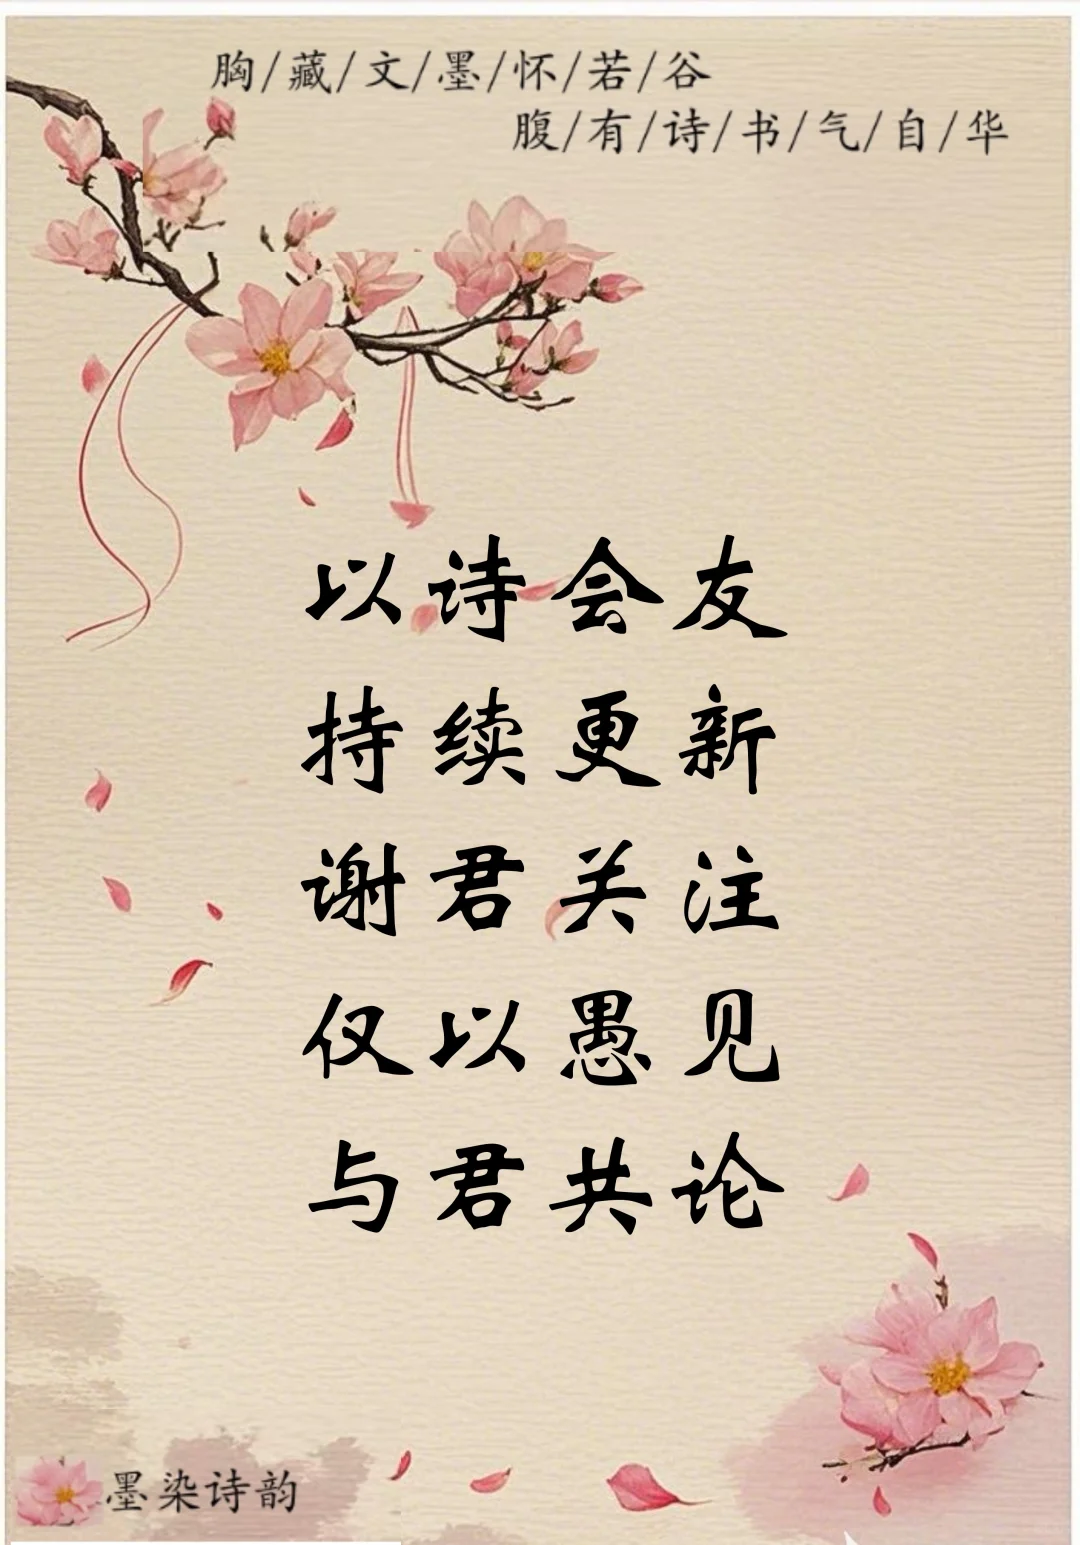 胸/藏/文/墨/怀/若/谷
腹/有/诗/书/气/自/华
以诗会友
持续更新
谢君关注
仅以愚见
与君共论
墨染诗韵